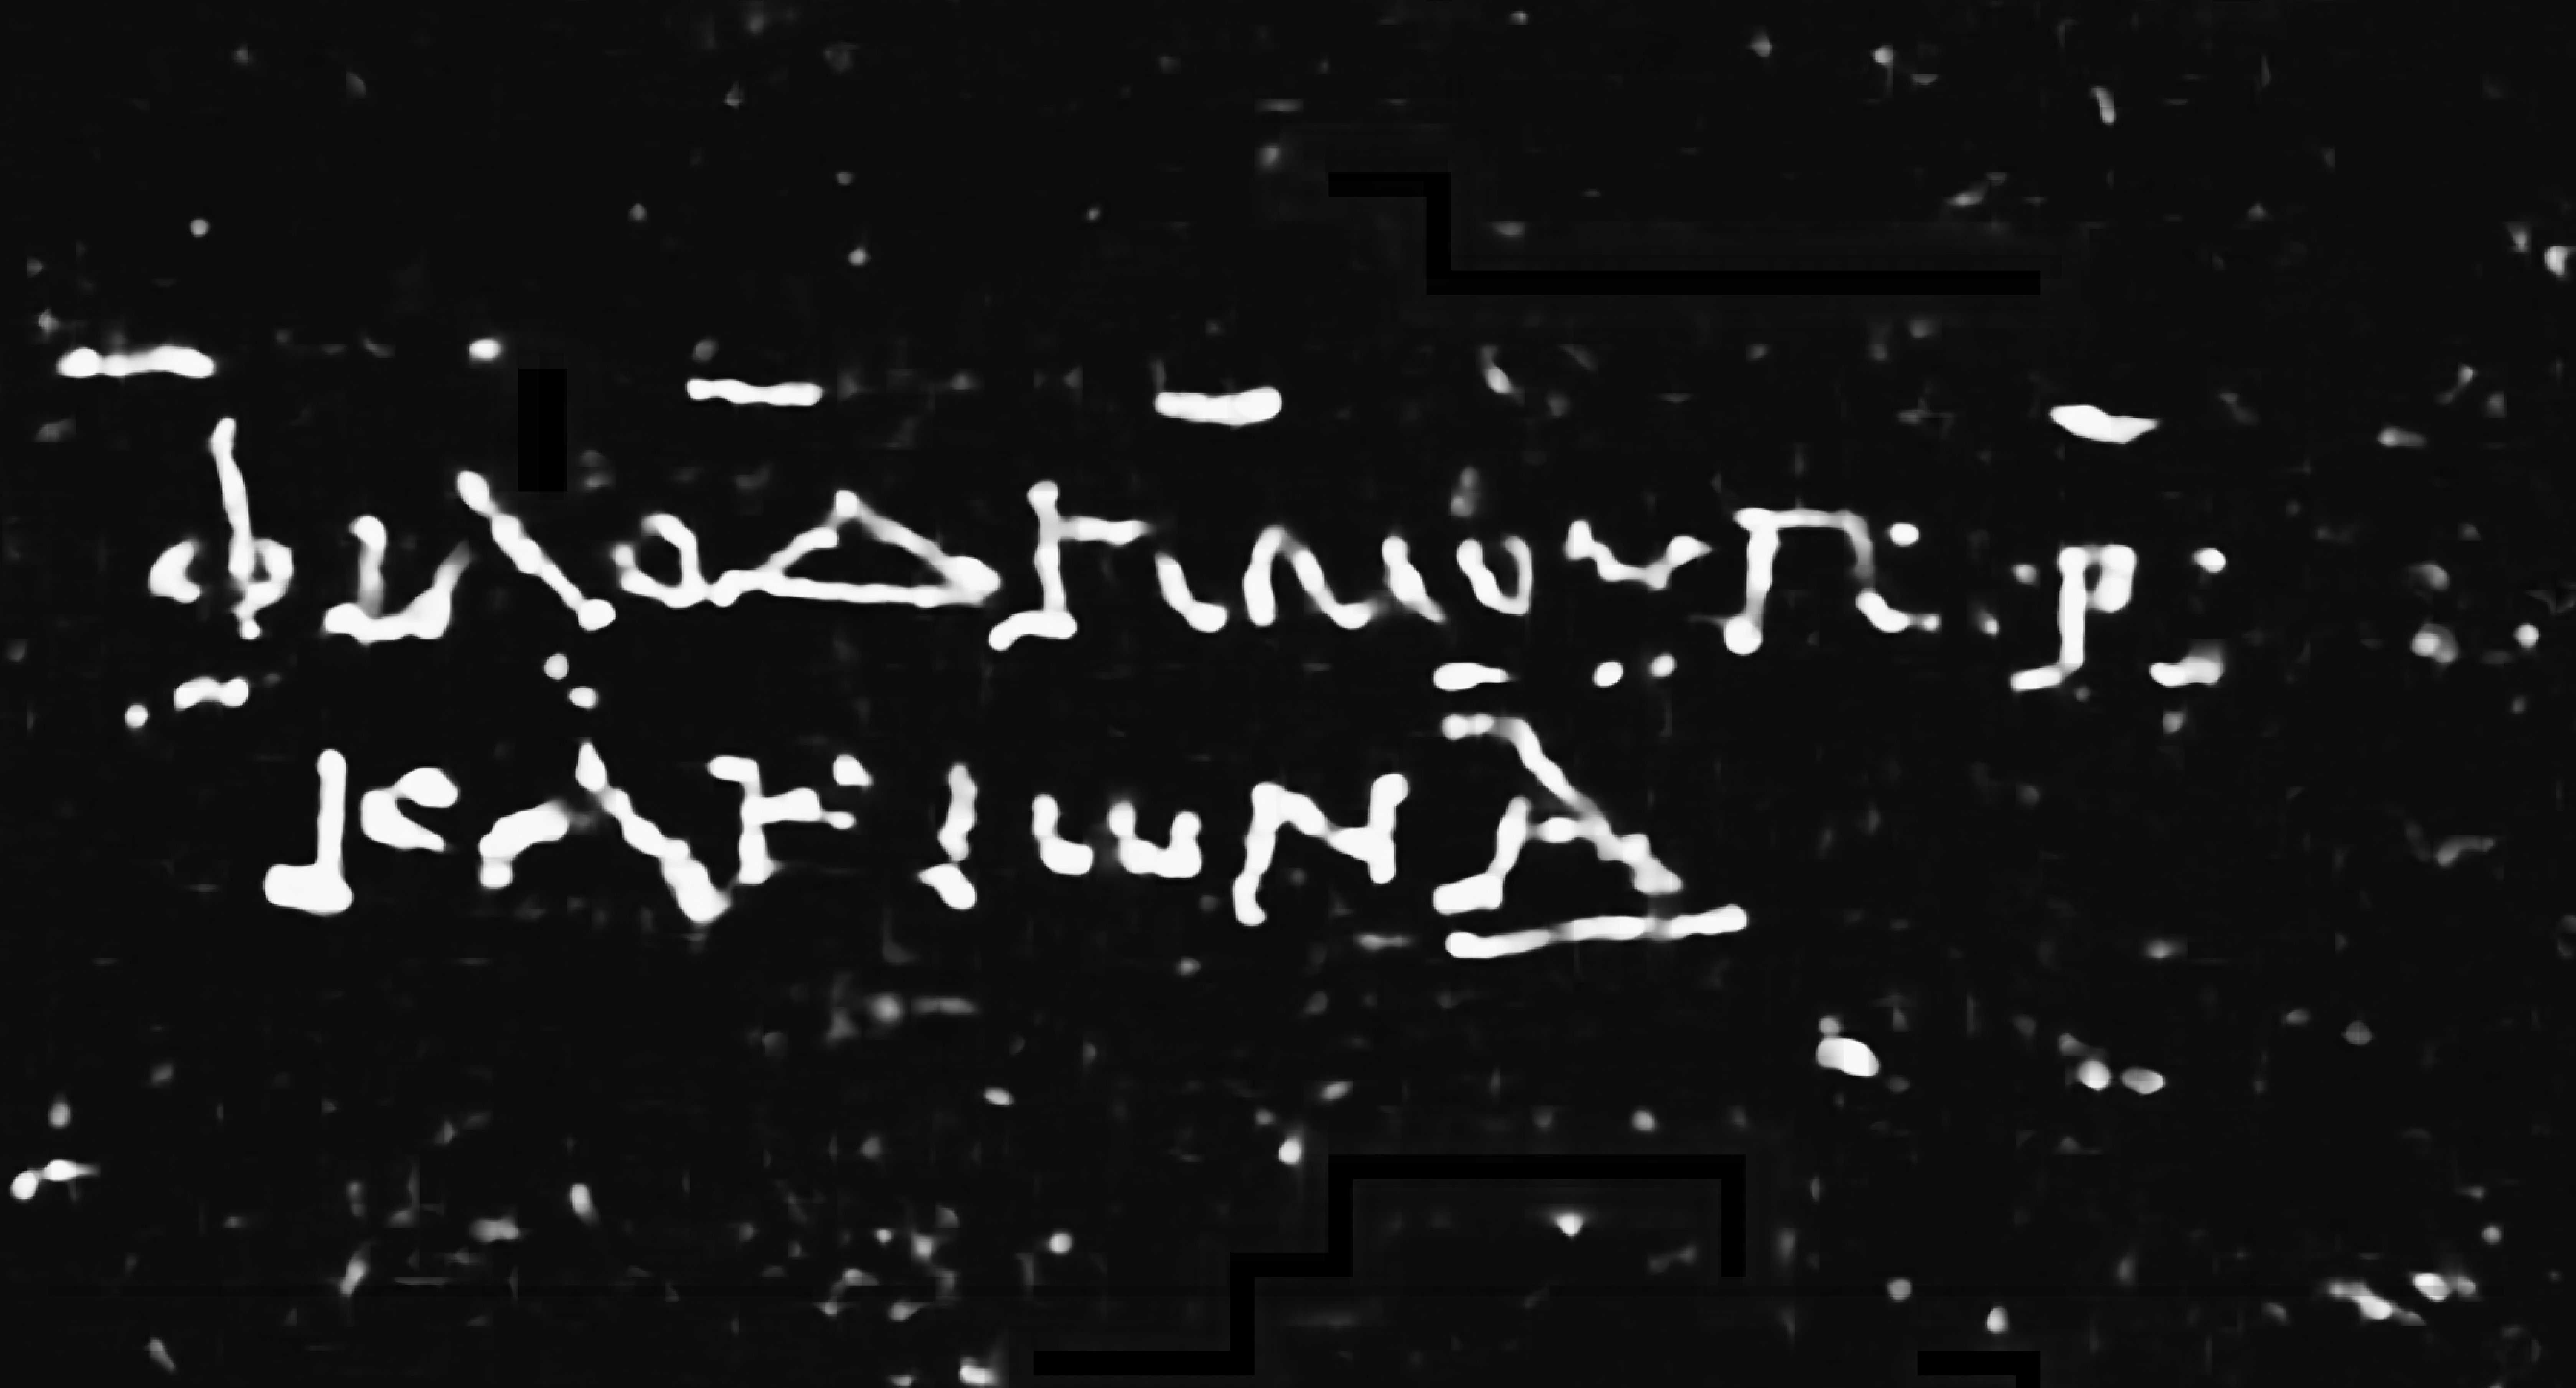 ΦΙΛΟΔΗΜΟΥ ΠΕΡΙ
ΚΑΚΙΩΝ Α